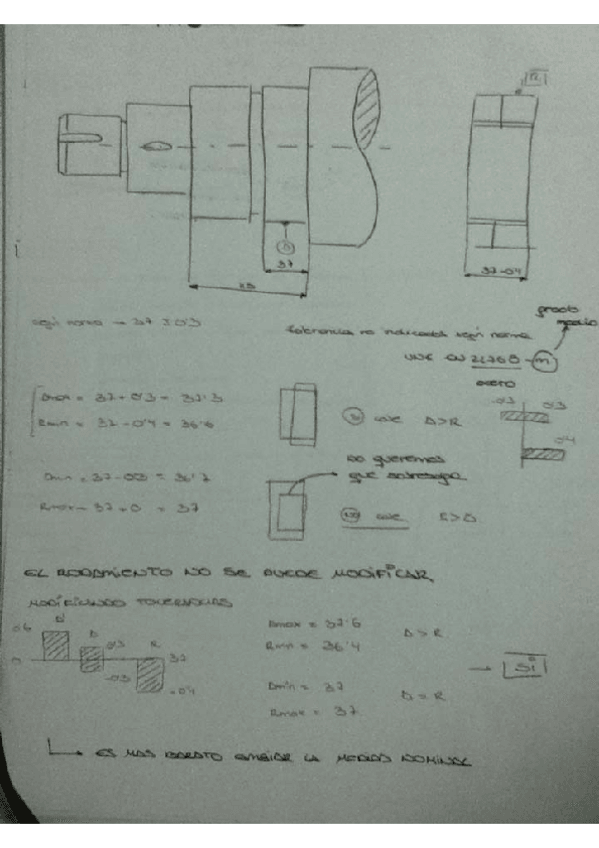 R
D
37
37-0'4
según norma → 37 ± 0'3
tolerancias no indicadas según norma
grado medio
UNE EN 22768-m
Dmax = 37+0'3 = 37'3
Rmin = 37-0'4 = 36'6
D>R
0'3
0'3
0'4
Dmin = 37-0'3 = 36'7
Rmax = 37+0 = 37
no queremos
que sobresalga
R>D
EL RODAMIENTO NO SE PUEDE MODIFICAR
MODIFICANDO TOLERANCIAS
D'
D
R
0'6
0
0'3
-0'3
37
-0'4
Dmax = 37'6
Rmin = 36'4
D > R
Dmin = 37
Rmax = 37
D = R
→ SI
ES MAS BARATO CAMBIAR LA MEDIDA NOMINAL